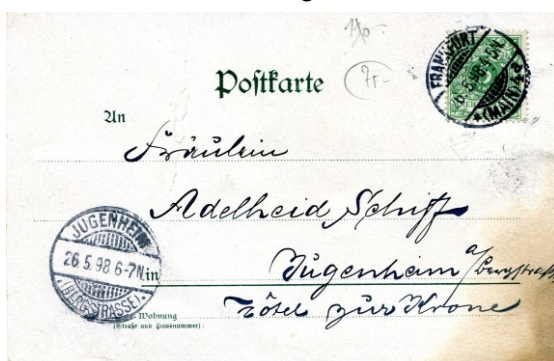 Postkarte
An
Fräulein
Adelheid Schiff
Jugenheim a/Bergstraße
Hôtel zur Krone
in
Wohnung
(Straße und Hausnummer)
FRANKFURT
(MAIN)
JUGENHEIM
26.5.98 6-7N.
(BERGSTRASSE).